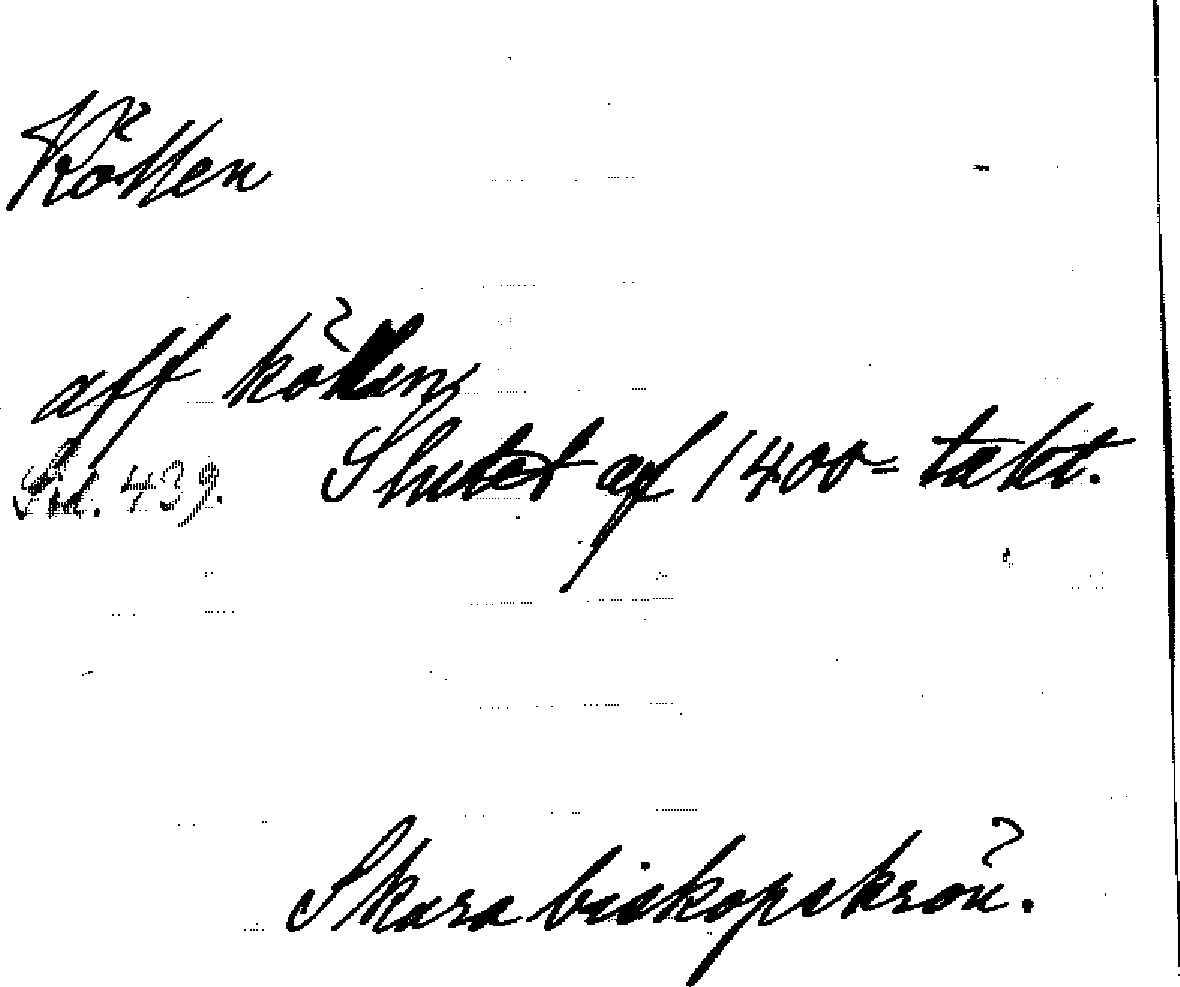 Kållen
aff kållen,
Sid. 439. Slutet af 1400-talet.
Skara biskopskrön.